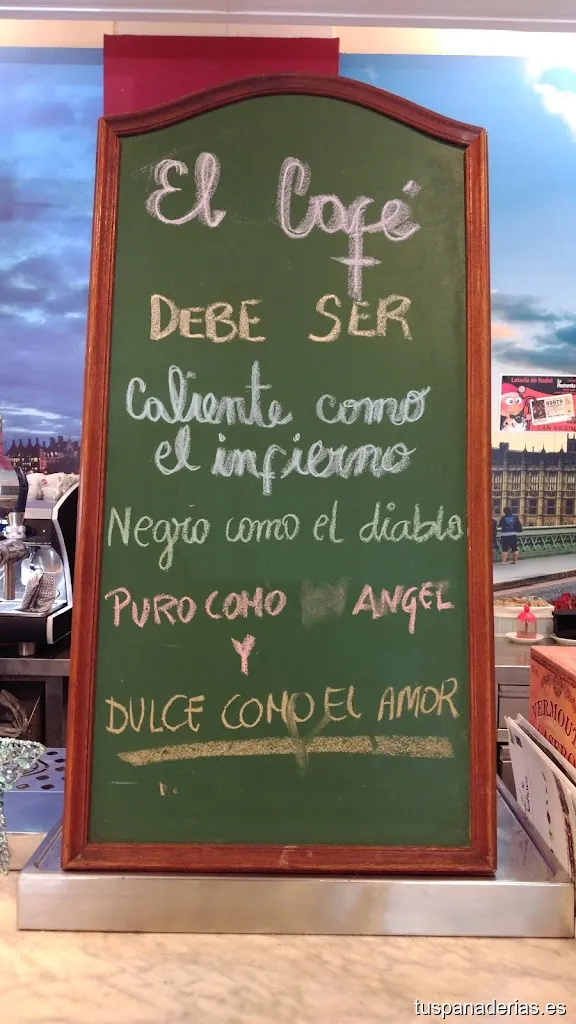 El Café
DEBE SER
Caliente como
el infierno
Negro como el diablo
PURO COMO ANGEL
Y
DULCE COMO EL AMOR
Loteria de Nadal
VERMOUT
tuspanaderias.es